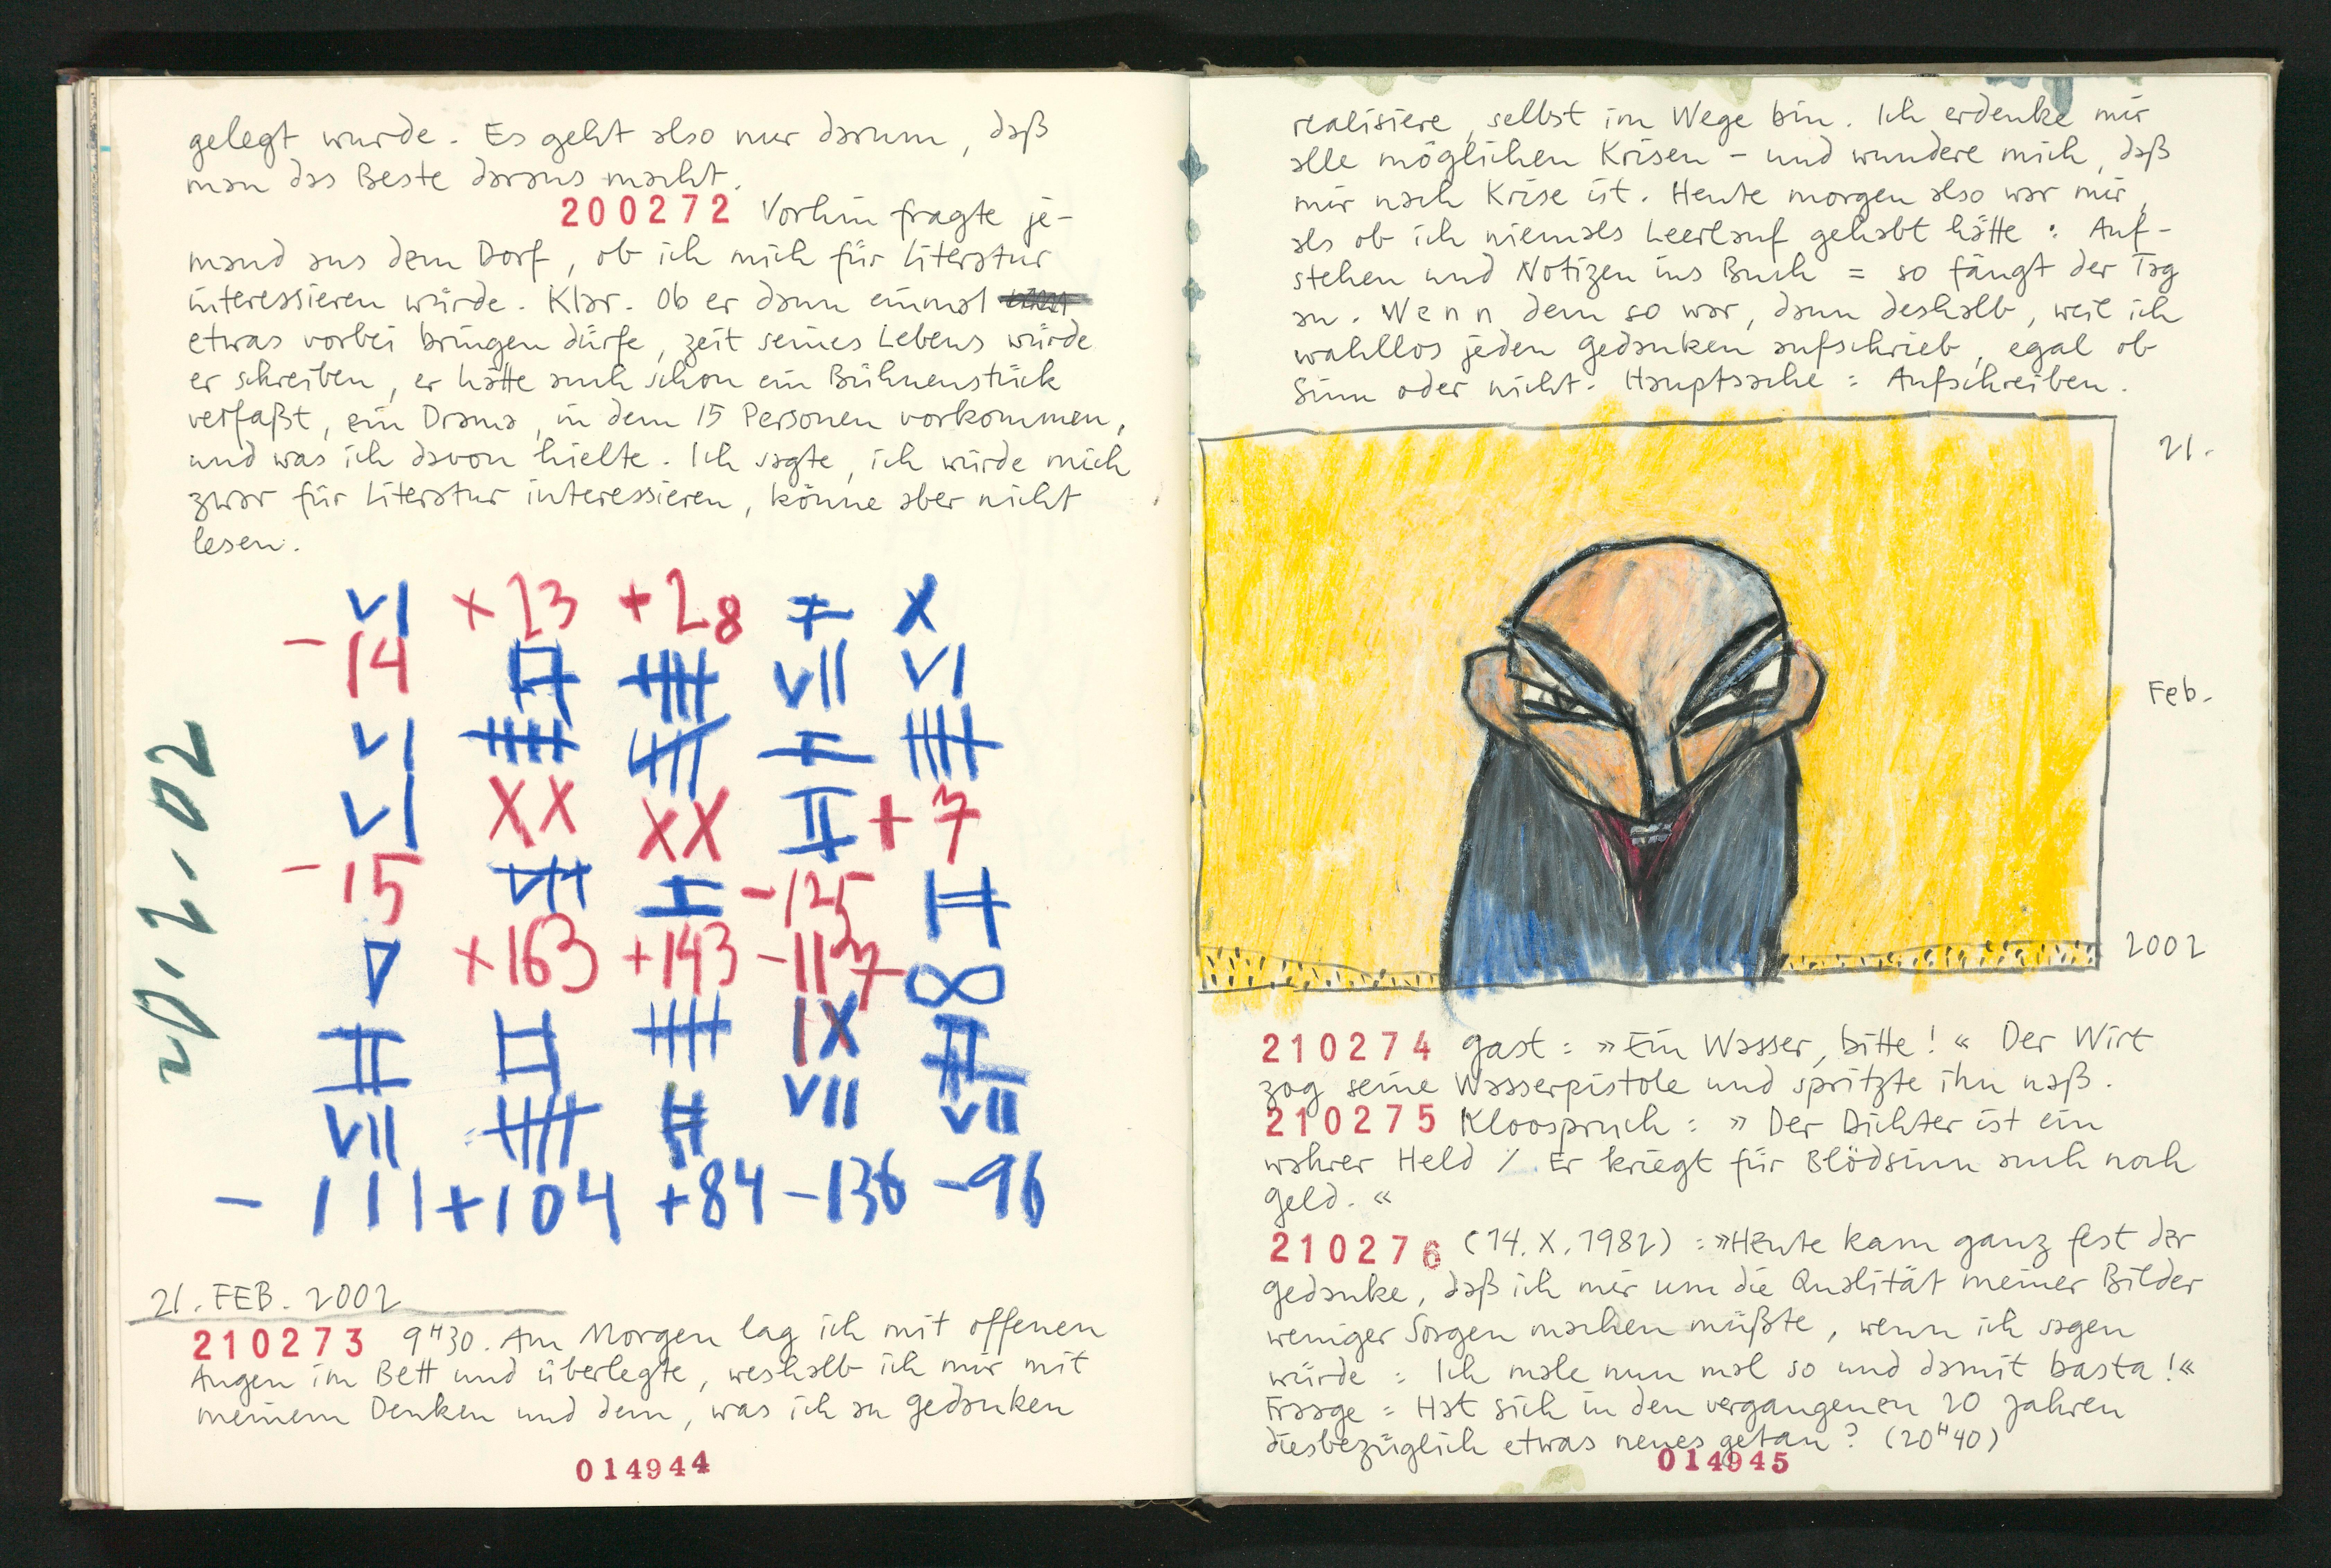 gelegt wurde. Es geht also nur darum, daß
man das Beste daraus macht.
200272 Vorhin fragte je-
mand aus dem Dorf, ob ich mich für Literatur
interessieren würde. Klar. Ob er dann einmal
etwas vorbei bringen dürfe, zeit seines Lebens würde
er schreiben, er hätte auch schon ein Bühnenstück
verfaßt, ein Drama, in dem 15 Personen vorkommen,
und was ich davon hielte. Ich sagte, ich würde mich
zwar für Literatur interessieren, könne aber nicht
lesen.
VI +23 +28 X
-14 VII VI
VI
VI XX XX II +7
-15 I -125
+163 +143 -113 ∞
II IX
VII VII VII
-111 +104 +84 -136 -96
20.2.02
21. FEB. 2002
210273 9H30. Am Morgen lag ich mit offenen
Augen im Bett und überlegte, weshalb ich mir mit
meinem Denken und dem, was ich an Gedanken
014944
realisiere, selbst im Wege bin. Ich erdenke mir
alle möglichen Krisen - und wundere mich, daß
mir nach Krise ist. Heute morgen also war mir,
als ob ich niemals Leerlauf gehabt hätte: Auf-
stehen und Notizen ins Buch = so fängt der Tag
an. Wenn dem so war, dann deshalb, weil ich
wahllos jeden Gedanken aufschrieb, egal ob
Sinn oder nicht. Hauptsache: Aufschreiben.
21.
Feb.
2002
210274 Gast: »Ein Wasser, bitte!« Der Wirt
zog seine Wasserpistole und spritzte ihn naß.
210275 Kloospruch: »Der Dichter ist ein
wahrer Held / Er kriegt für Blödsinn auch noch
Geld.«
210276 (14.X.1982): »Heute kam ganz fest der
Gedanke, daß ich mir um die Qualität meiner Bilder
weniger Sorgen machen müßte, wenn ich sagen
würde: Ich male nun mal so und damit basta!«
Fraage: Hat sich in den vergangenen 20 Jahren
diesbezüglich etwas neues getan? (20H40)
014945